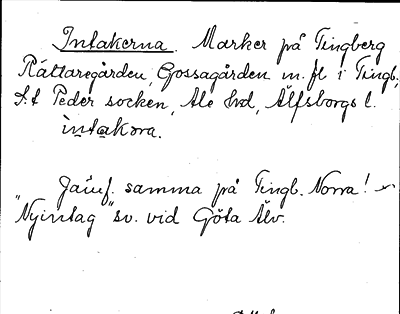 Intakerna. Marker på Tingberg
Rättaregården, Gossagården m. fl i Tingb.,
S:t Peder socken, Ale Hrd, Älfsborgs l.
intakora.
Jämf. samma på Tingb. Norra!
"Nyintag" sv. vid Göta Älv.